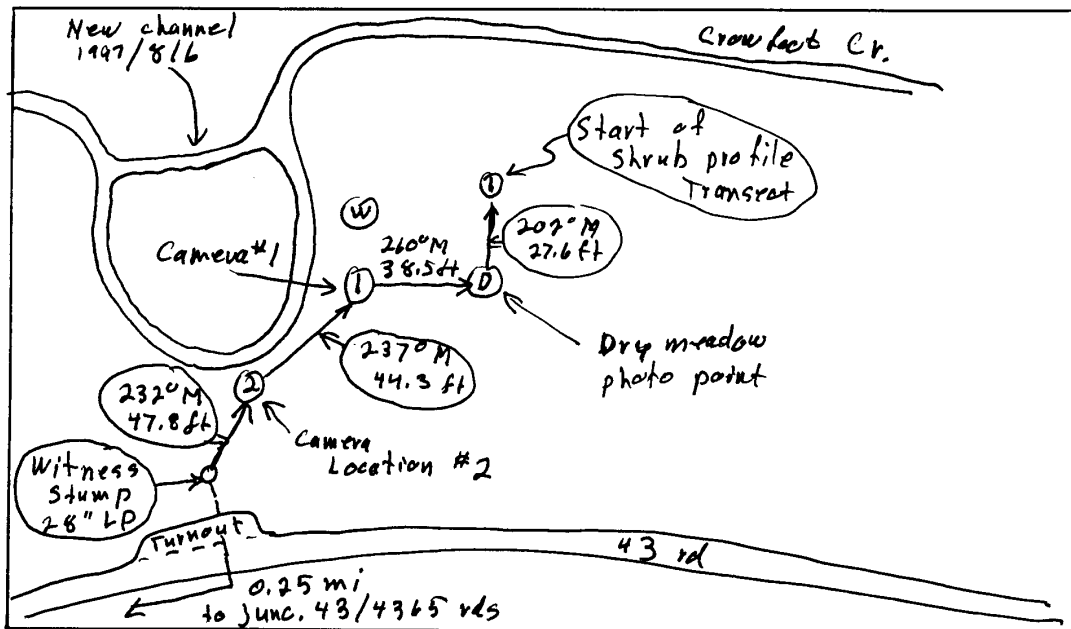 New channel
1997/8/6
Crowfoot Cr.
Start of
Shrub profile
Transect
T
W
Camera #1
260° M
38.5 ft
202° M
27.6 ft
1
D
237° M
44.3 ft
Dry meadow
photo point
232° M
47.8 ft
2
Camera
Location #2
Witness
Stump
28" LP
Turnout
43 rd
0.25 mi
to junc. 43/4365 rds